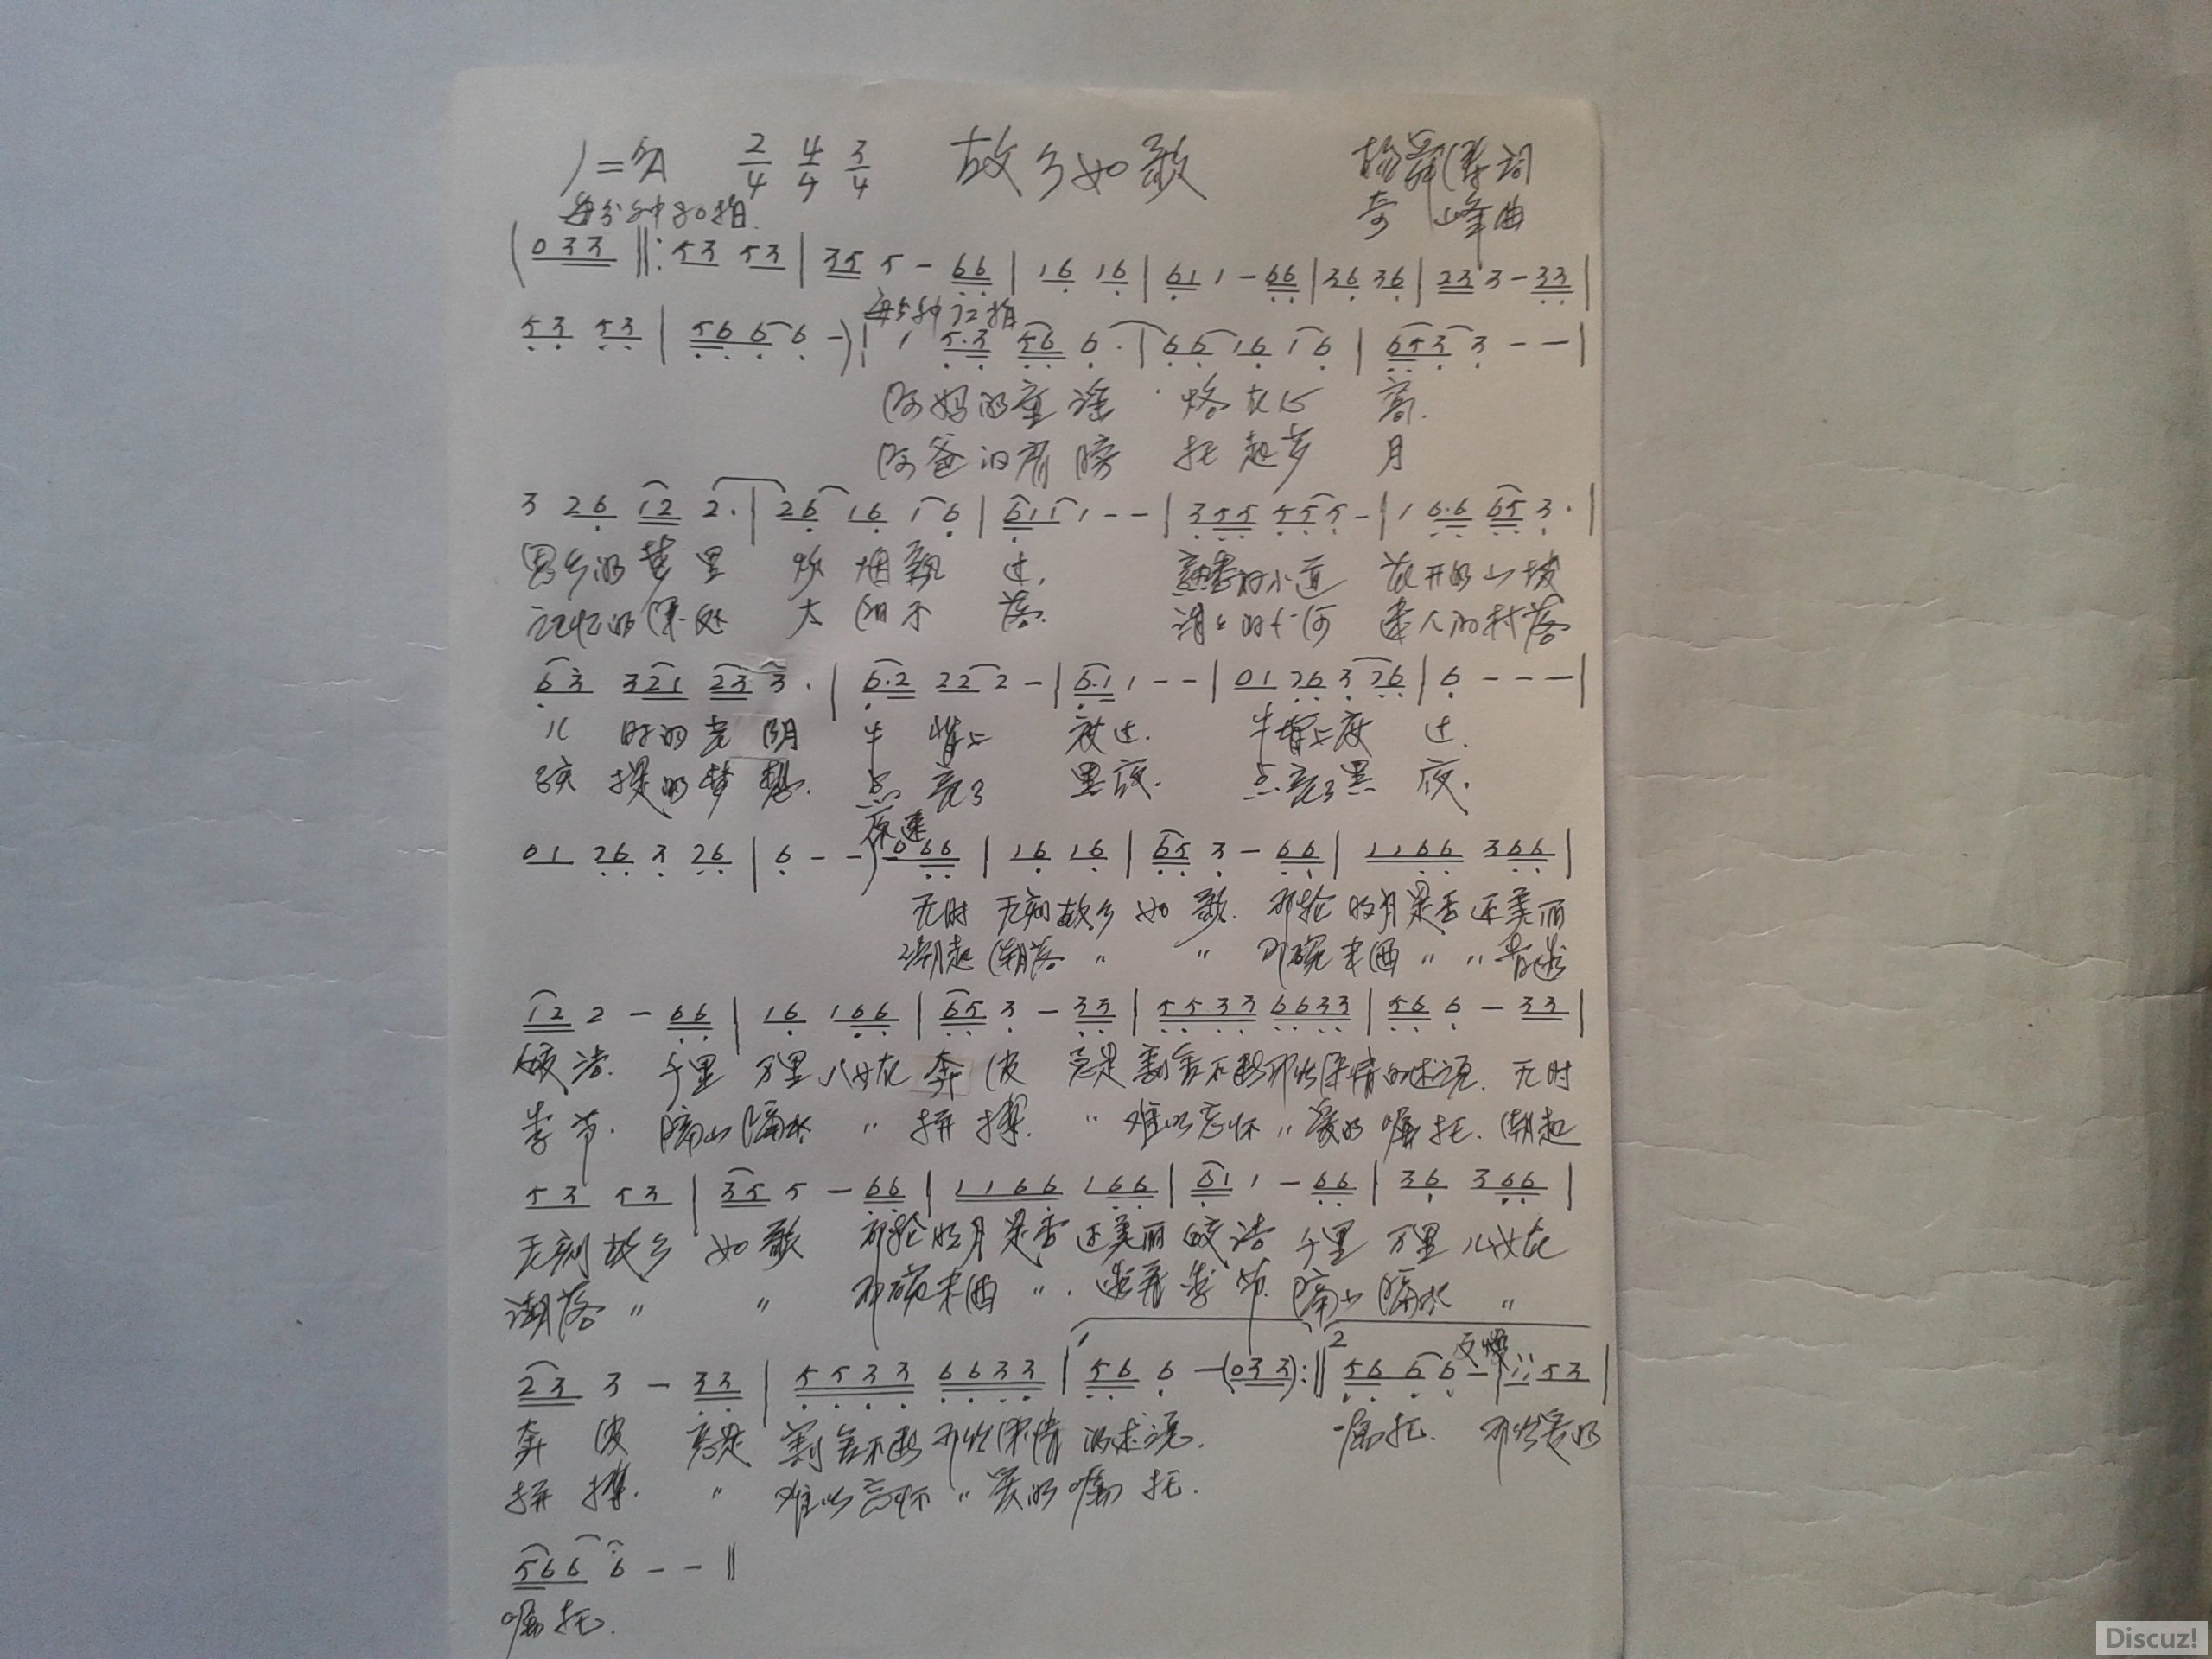 1=♭A 2/4 4/4 3/4 故乡如歌 词
每分钟80拍 奇峰曲
(0 3 3 ‖: 5 3 5 3 | 3 5 5 - 6 6 | 1 6 1 6 | 6 1 1 - 6 6 | 3 6 3 6 | 2 3 3 - 3 3 |
每分钟72拍
5 3 5 3 | 5 6 6 6 -) | 1 5·3 5 6 6· | 6 6 1 6 1 6 | 6 5 3 3 - - |
阿妈的童谣 烙在心窝.
阿爸的肩膀 托起岁月
3 2 6 1 2 2· | 2 6 1 6 1 6 | 6 1 1 1 - - | 3 5 5 5 5 5 - | 1 6·6 6 5 3· |
思乡的梦里 炊烟飘过, 熟悉的小道 花开的山坡
记忆的深处 大阳不落. 清清的小河 迷人的村落
6 3 3 2 1 2 3 3· | 6·2 2 2 2 - | 6·1 1 - - | 0 1 2 6 3 2 6 | 6 - - - |
儿时的光阴 牛背上度过. 牛背上度过.
孩提的梦想. 点亮了黑夜. 点亮了黑夜.
原速
0 1 2 6 3 2 6 | 6 - - 0 6 6 | 1 6 1 6 | 6 5 3 - 6 6 | 1 1 6 6 3 6 6 |
无时无刻故乡如歌. 那轮明月是否还美丽
潮起潮落 〃 〃 那碗东西 〃 〃
1 2 2 - 6 6 | 1 6 1 6 6 | 6 5 3 - 3 3 | 5 5 3 3 6 6 3 3 | 5 6 6 - 3 3 |
皎洁. 千里万里儿女在奔波 总是割舍不断那些深情的述说. 无时
季节. 隔山隔水 〃 拼搏. 〃 难以忘怀 〃 爱的嘱托. 潮起
5 3 5 3 | 3 5 5 - 6 6 | 1 1 6 6 1 6 6 | 6 1 1 - 6 6 | 3 6 3 6 6 |
无刻故乡如歌 那轮明月是否还美丽皎洁 千里万里儿女在
潮落 〃 〃 那碗东西 〃. 季节. 隔山隔水 〃
1 2 反慢
2 3 3 - 3 3 | 5 5 3 3 6 6 3 3 | 5 6 6 - (0 3 3) :‖ 5 6 6 6 - | 1 1 5 3 |
奔波 总是割舍不断那些深情的述说. 嘱托. 那些爱的
拼搏. 〃 难以忘怀 〃 爱的嘱托.
5 6 6 6 - - ‖
嘱托.
Discuz!